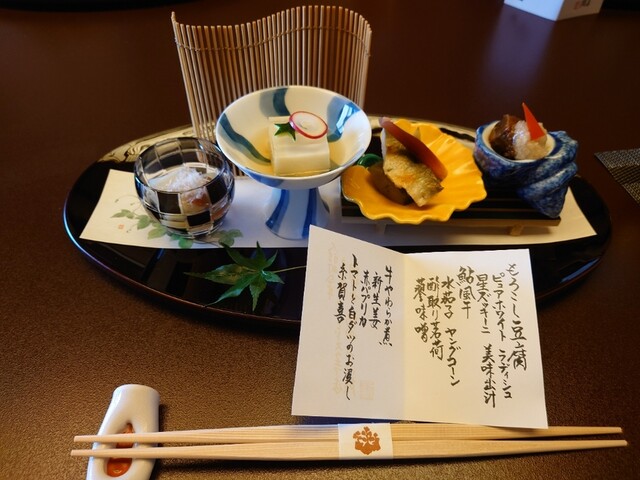 もろこし豆腐
ピュアホワイト ラディシュ
星ズッキーニ 美味出汁
鮎風干
水茄子 ヤングコーン
酢取り茗荷
蓼味噌
牛やわらか煮
新生姜
赤パプリカ
トマトと白ダツのお浸し
糸賀喜